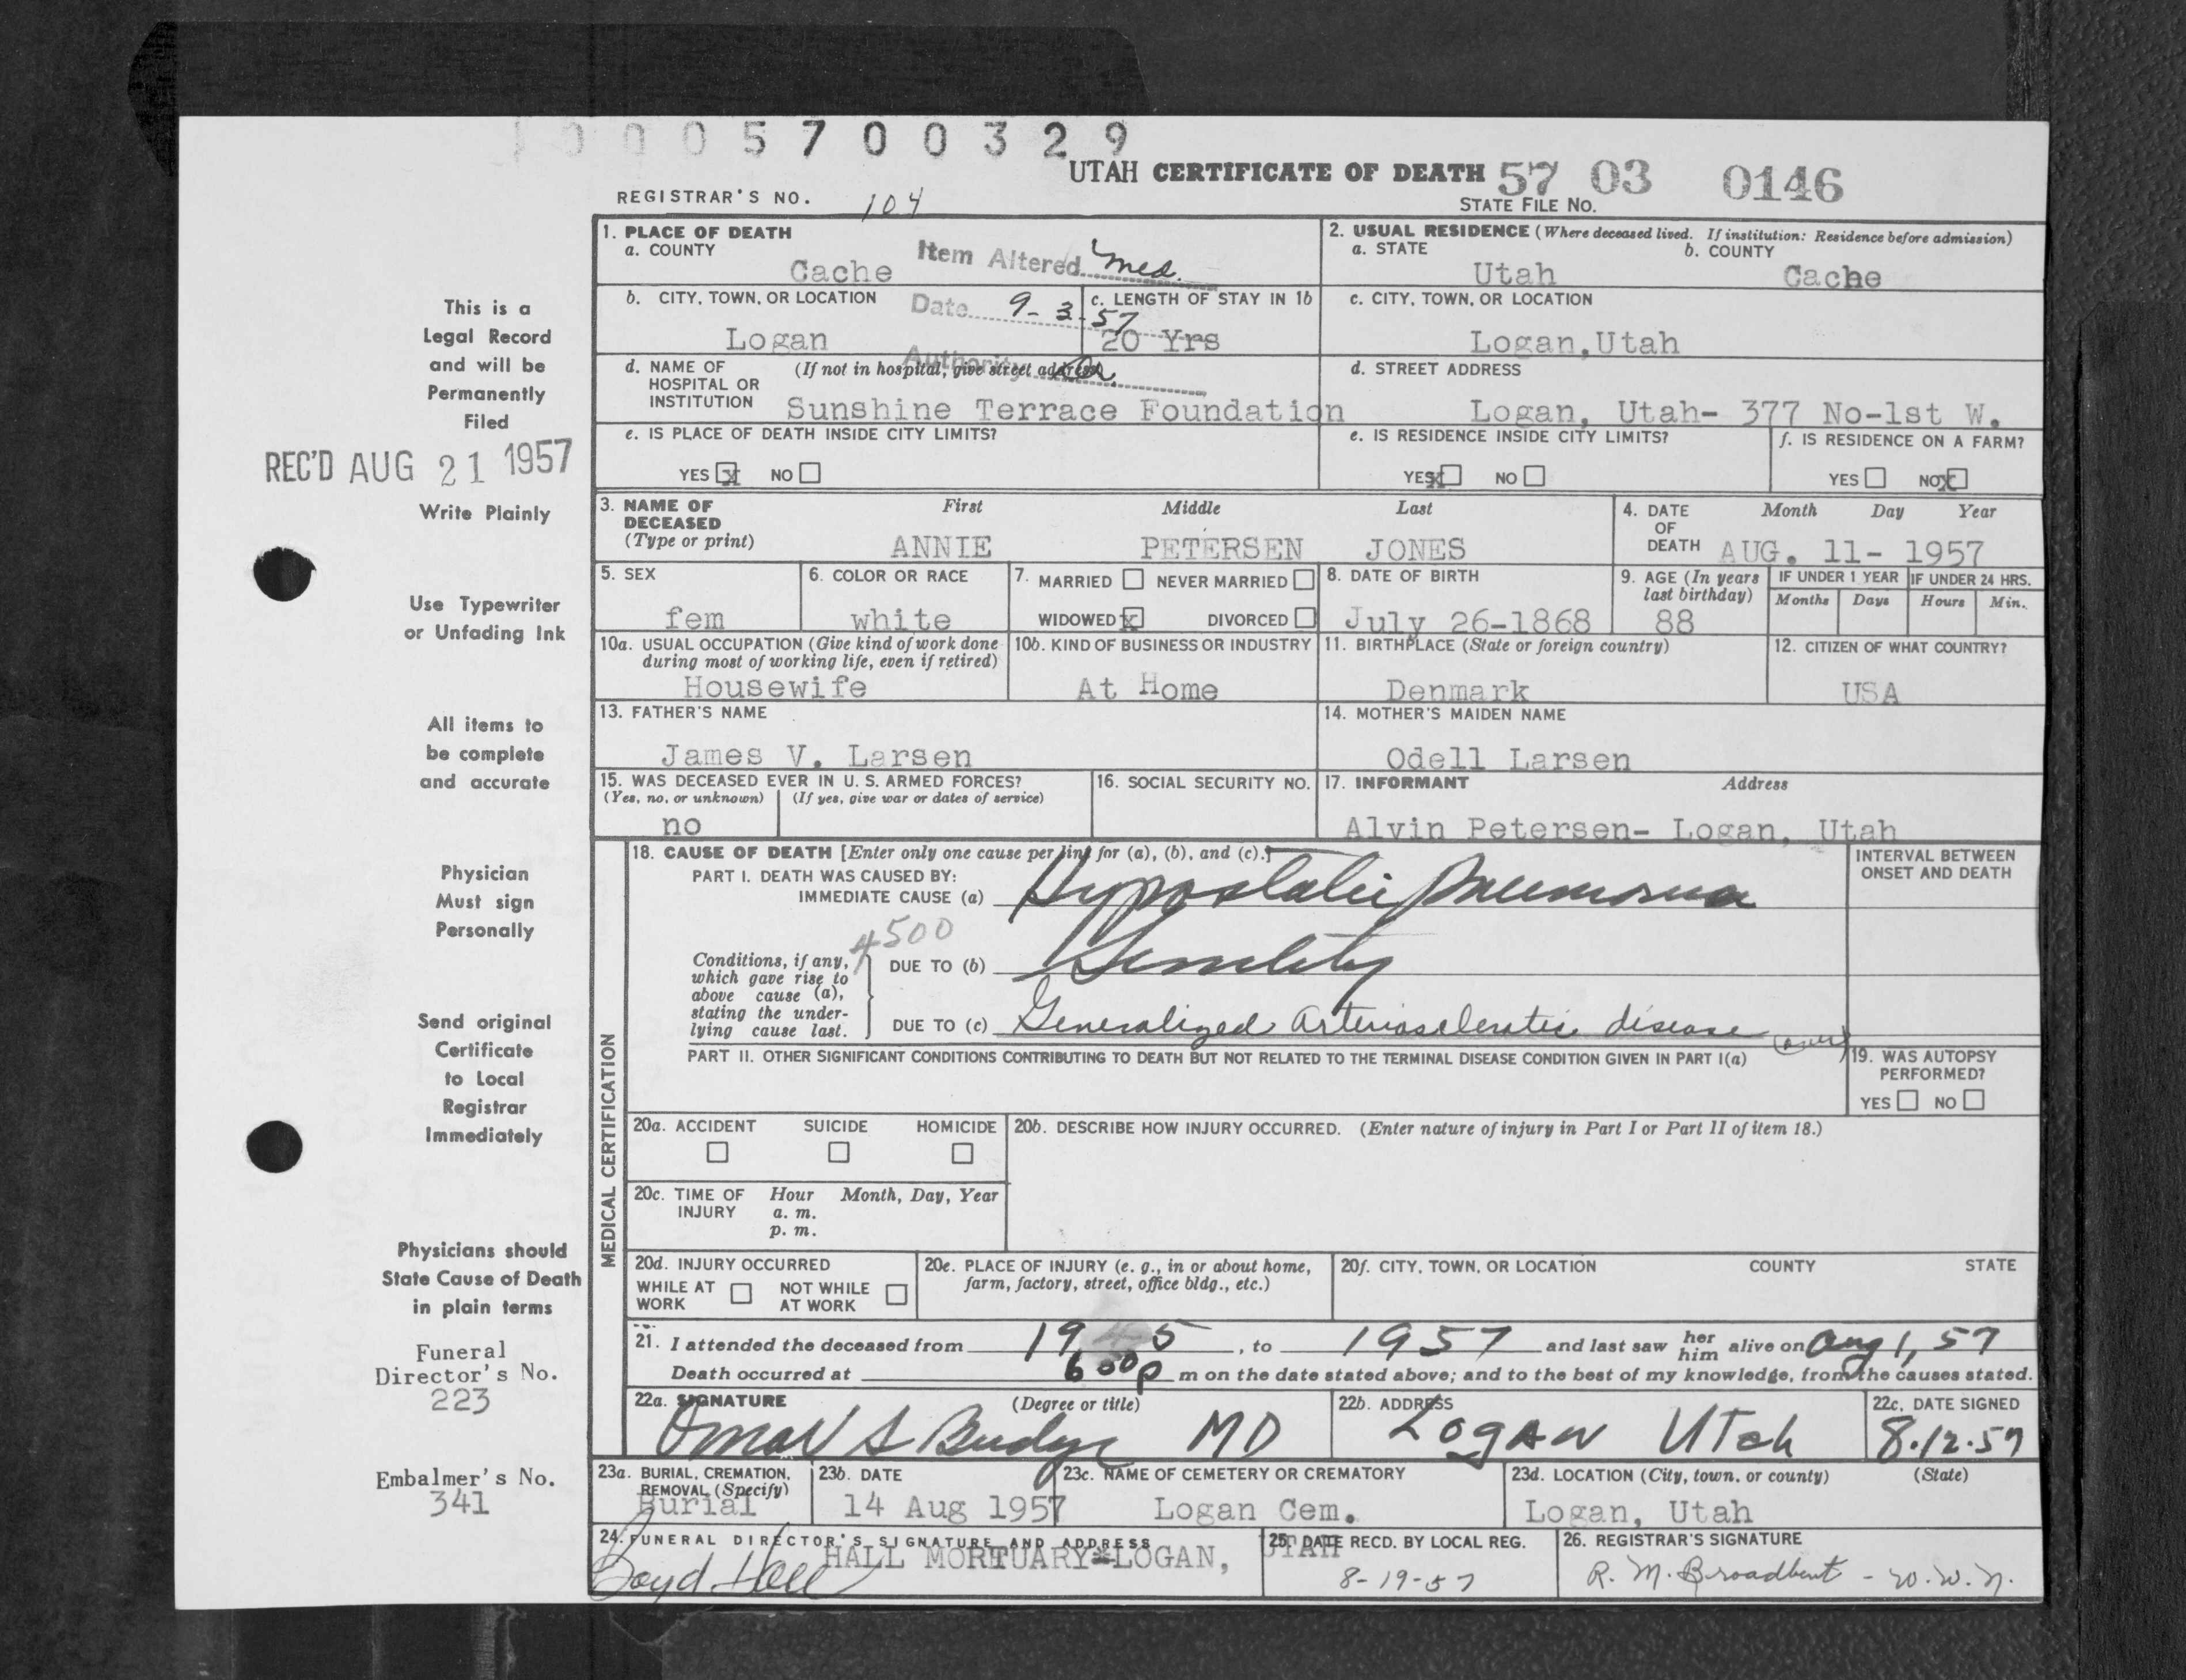 1 0 0 0 5 7 0 0 3 2 9
UTAH CERTIFICATE OF DEATH 57 03 0146
REGISTRAR'S NO. 104
STATE FILE NO.
1. PLACE OF DEATH
a. COUNTY
Cache
Item Altered med.
2. USUAL RESIDENCE (Where deceased lived. If institution: Residence before admission)
a. STATE
Utah
b. COUNTY
Cache
b. CITY, TOWN, OR LOCATION
Logan
Date 9-3-57
c. LENGTH OF STAY IN 1b
20 Yrs
c. CITY, TOWN, OR LOCATION
Logan,Utah
Authority
d. NAME OF HOSPITAL OR INSTITUTION
(If not in hospital, give street address)
Sunshine Terrace Foundation
d. STREET ADDRESS
Logan, Utah- 377 No-1st W.
e. IS PLACE OF DEATH INSIDE CITY LIMITS?
YES x NO
e. IS RESIDENCE INSIDE CITY LIMITS?
YES x NO
f. IS RESIDENCE ON A FARM?
YES NO x
3. NAME OF DECEASED (Type or print)
First Middle Last
ANNIE PETERSEN JONES
4. DATE OF DEATH
Month Day Year
AUG. 11- 1957
5. SEX
fem
6. COLOR OR RACE
white
7. MARRIED NEVER MARRIED
WIDOWED x DIVORCED
8. DATE OF BIRTH
July 26-1868
9. AGE (In years last birthday)
88
IF UNDER 1 YEAR
Months Days
IF UNDER 24 HRS.
Hours Min.
10a. USUAL OCCUPATION (Give kind of work done during most of working life, even if retired)
Housewife
10b. KIND OF BUSINESS OR INDUSTRY
At Home
11. BIRTHPLACE (State or foreign country)
Denmark
12. CITIZEN OF WHAT COUNTRY?
USA
13. FATHER'S NAME
James V. Larsen
14. MOTHER'S MAIDEN NAME
Odell Larsen
15. WAS DECEASED EVER IN U. S. ARMED FORCES?
(Yes, no, or unknown) (If yes, give war or dates of service)
no
16. SOCIAL SECURITY NO.
17. INFORMANT Address
Alvin Petersen- Logan, Utah
MEDICAL CERTIFICATION
18. CAUSE OF DEATH [Enter only one cause per line for (a), (b), and (c).]
PART I. DEATH WAS CAUSED BY:
IMMEDIATE CAUSE (a) Hypostatic Pneumonia
4500
Conditions, if any, which gave rise to above cause (a), stating the underlying cause last.
DUE TO (b) Senility
DUE TO (c) Generalized arteriosclerotic disease (over)
INTERVAL BETWEEN ONSET AND DEATH
PART II. OTHER SIGNIFICANT CONDITIONS CONTRIBUTING TO DEATH BUT NOT RELATED TO THE TERMINAL DISEASE CONDITION GIVEN IN PART I(a)
19. WAS AUTOPSY PERFORMED?
YES NO
20a. ACCIDENT SUICIDE HOMICIDE
20b. DESCRIBE HOW INJURY OCCURRED. (Enter nature of injury in Part I or Part II of item 18.)
20c. TIME OF INJURY
Hour Month, Day, Year
a. m.
p. m.
20d. INJURY OCCURRED
WHILE AT WORK NOT WHILE AT WORK
20e. PLACE OF INJURY (e. g., in or about home, farm, factory, street, office bldg., etc.)
20f. CITY, TOWN, OR LOCATION COUNTY STATE
21. I attended the deceased from 1945, to 1957 and last saw her him alive on Aug 1, 57
Death occurred at 6 00 p m on the date stated above; and to the best of my knowledge, from the causes stated.
22a. SIGNATURE (Degree or title)
Omar S Budge MD
22b. ADDRESS
Logan Utah
22c. DATE SIGNED
8.12.57
23a. BURIAL, CREMATION, REMOVAL (Specify)
Burial
23b. DATE
14 Aug 1957
23c. NAME OF CEMETERY OR CREMATORY
Logan Cem.
23d. LOCATION (City, town, or county) (State)
Logan, Utah
24. FUNERAL DIRECTOR'S SIGNATURE AND ADDRESS
HALL MORTUARY-LOGAN, UTAH
Boyd Hall
25. DATE RECD. BY LOCAL REG.
8-19-57
26. REGISTRAR'S SIGNATURE
R. M. Broadbent - W.W.N.
This is a
Legal Record
and will be
Permanently
Filed
REC'D AUG 21 1957
Write Plainly
Use Typewriter
or Unfading Ink
All items to
be complete
and accurate
Physician
Must sign
Personally
Send original
Certificate
to Local
Registrar
Immediately
Physicians should
State Cause of Death
in plain terms
Funeral
Director's No.
223
Embalmer's No.
341